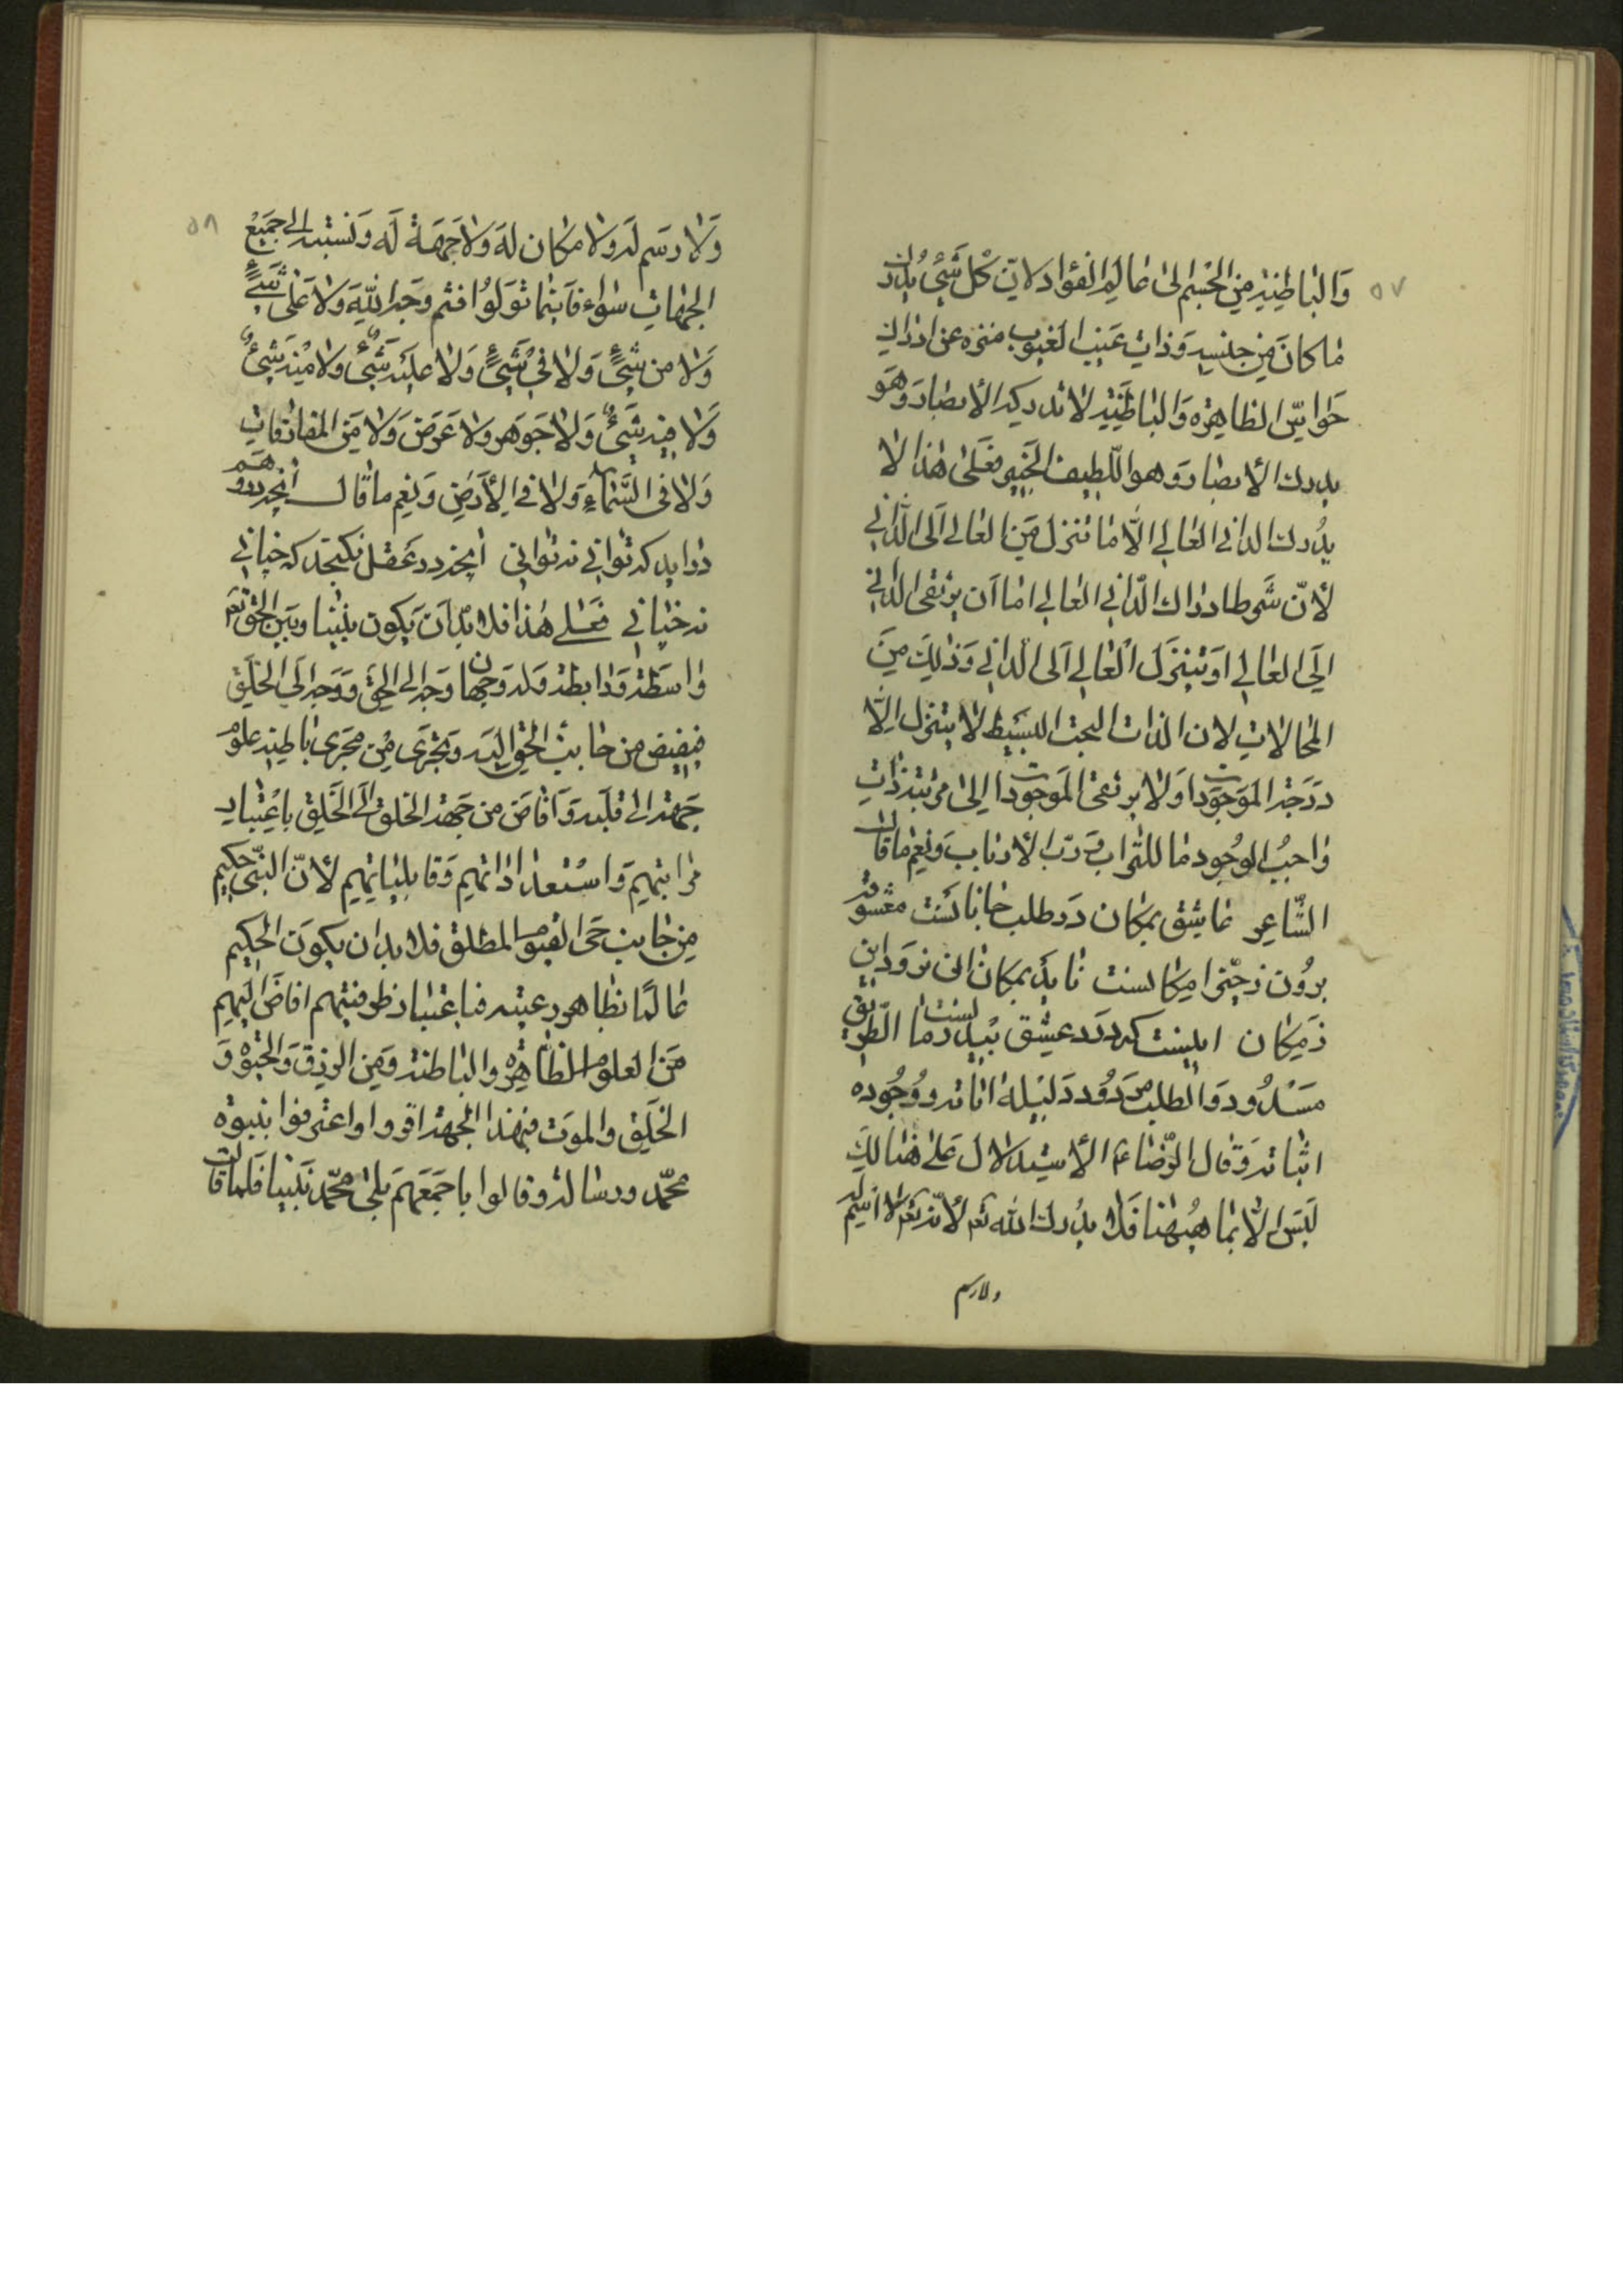 ٥٧
وَالباطِنِيَّةِ مِنَ الجِسْمِ الىٰ عٰالَمِ الفؤاد لاَنّ كُلَّ شَيْءٍ يُدْرِكُ
مٰا كانَ مِن جِنسِهِ وَ ذٰاتِ غَيبِ الغيُوبِ منزه عن ادراك
حَوٰاسِّ الظاهِرَه وَالباطِنَيةِ لا تدركه الأبصار وَهوَ
يدرك الأبصار وَهو اللّطيف الخَبير فعَلىٰ هٰذٰا لا
يُدرك الدانى العٰالي الّا مٰا تنزل مِنَ العالى الَى الدّٰانى
لأنّ شَرط ادراك الدّانى العالى امّا اَن يرتقى الدّانى
اِلَى العالي اَو يتنزَل العالي اَلى الدانى وَ ذٰلِكَ مِنَ
المحٰالاتِ لان الذات البحت البسيط لا يتنزل اِلّٰا
دَرَجة الموَجوداتِ وَلا يرتقى الموَجودات اِلىٰ مرتبة ذاتِ
وٰاجِبُ الوجُود ما للتراب وَ ربّ الأرباب وَ نِعْمَ ما قال
الشّاعِر عٰاشِق بمكان دَر طلب جٰانٰانَست معشوقه
برُون ز حيّز امكانست نٰايد بمكان ان نرود اين
ز مَكان اينست كه دَرد عِشق بيدرمانست الطّريق
مَسْدُود وَ الطلب مَردُود دَليلهُ اٰياته وَ وُجُوده
اثباته وَ قال الرّضاء ع الأستِدلال عَلىٰ هُنالِكَ
لَيَس اِلّا بما هيٰهُنا فَلٰا يدُرك اللّه تع لأنّه تع لا اسِم له
ولا رسم
٥٨
وَلا رسَم لَه وَلا مكان لهَ وَلا جَهَةَ لَه وَ نسبته الى جَميعُ
الجهاتِ سَوٰاء فَاينما توَلوُا فثم وَجه اللّه وَلا عَلىٰ شَيءٍ
وَلا من شَيءٍ وَلا في شَيءٍ وَلا عليَه شَيءٌ وَلا مِنْه شَيءٌ
وَلا فيه شَيءٌ وَلا جَوهَر ولا عَرَض وَلا مِنَ المفارقاتِ
وَلا فى السَّماءِ وَلا في الأرَضِ وَ نِعِم ما قال انچه در وهم
درايد كه توانى نه توانى انچه در عَقل بگنجد كه چنانى
نه چنانى فعَلى هٰذا فلا بدّ اَن يَكون بيَننا وَ بَين الحقّ تعَ
وٰاسطَة وَ رابطة وَ له وَجهان وَجه الى الحقّ وَ وَجه اِلَى الخلَق
فيفيض من جانِب الحقّ اليَه وَ يجَرى مِن مجَرى باطنِه علوم
جَهته الى قلَبه وَ اَفاضَ من جهَة الخلق الَى الخَلق باعْتبٰار
مرٰاتبهِم وَ اسْتعدٰادٰاتهِم وَ قابليٰاتهِم لأنّ النّبيّ حَكيم
مِن جانِب حَى القيّوم المطلق فلا بد ان يكونَ الحكِيم
عٰالمًا بظاهر رعيته فباعتبٰار ظرفيتهم افاضَ اليهِم
مَن العلوُم الظّاهِره وَ الباطنه وَ مِن الرزق وَ الحَيٰوة وَ
الخلَق وَ الموَت فبهٰذا الجهة اقروا و اعترفوا بنبوة
محمّد و رسالته وَ قالوا باجمَعهم بَلىٰ محمّد نَبينا فَلما قالت